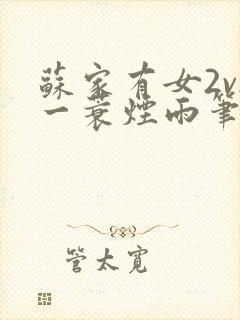 蘇家有女2v
一蓑煙雨筆
管太寬